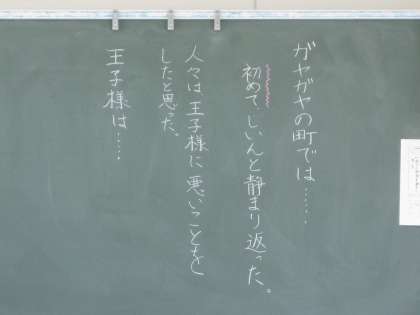 ガヤガヤの町では……
初めて、しいんと静まり返った。
人々は、王子様に悪いことを
したと思った。
王子様は……